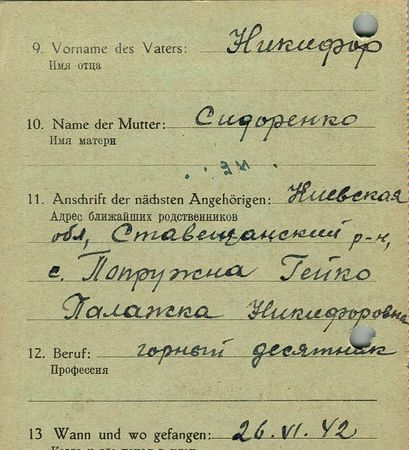 9. Vorname des Vaters: Никифор
Имя отца
10. Name der Mutter: Сидоренко
Имя матери
11. Anschrift der nächsten Angehörigen: Киевская
Адрес ближайших родственников
обл, Ставещанский р-н,
с. Попружна Гейко
Палажка Никифоровна
12. Beruf: горный десятник
Профессия
13 Wann und wo gefangen: 26.VI.42